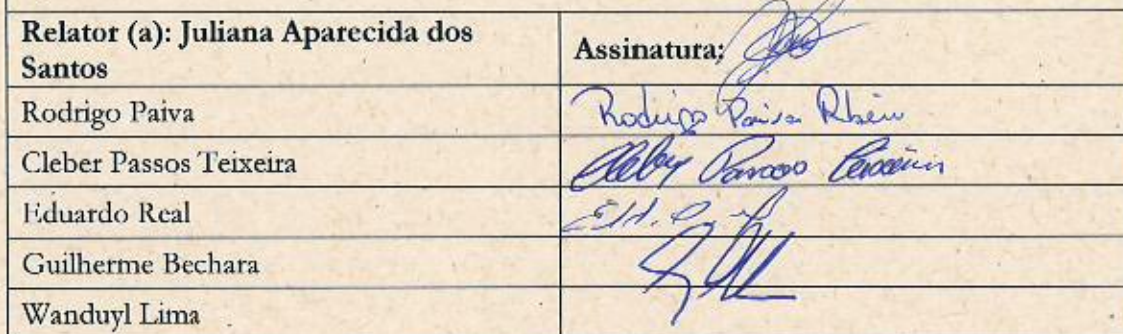 Relator (a): Juliana Aparecida dos
Santos
Assinatura:
Rodrigo Paiva
Rodrigo Paiva Ribeiro
Cleber Passos Teixeira
Cleber Passos Teixeira
Eduardo Real
Guilherme Bechara
Wanduyl Lima